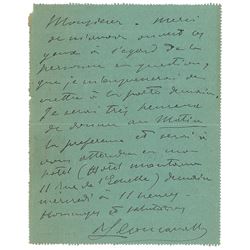 Monsieur - merci
de m'avoir ouvert les
yeux à l'égard de la
personne en question,
que je m'empresserai de
mettre à la porte demain.
Je serai très heureux
de donner au Matin
la préférence et serai à
vous attendre en mon
hotel (Hotel Normandie
11 rue de l'Echelle) demain
mercredi à 11 heures.
Hommages et salutations
RLeoncavallo